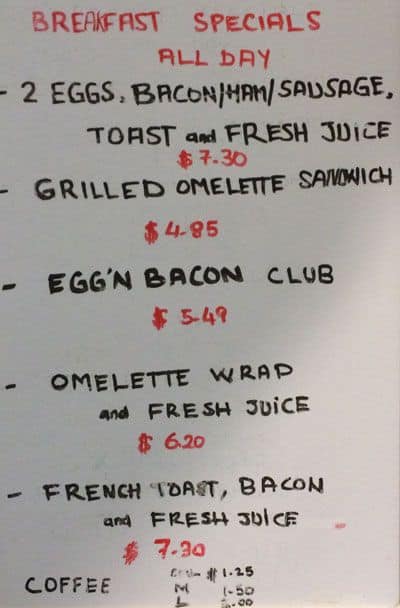 BREAKFAST SPECIALS
ALL DAY
- 2 EGGS, BACON/HAM/SAUSAGE,
TOAST and FRESH JUICE
$7.30
- GRILLED OMELETTE SANDWICH
$4.85
- EGG'N BACON CLUB
$5.49
- OMELETTE WRAP
and FRESH JUICE
$6.20
- FRENCH TOAST, BACON
and FRESH JUICE
$7.30
COFFEE $1.25
M 1.50
L